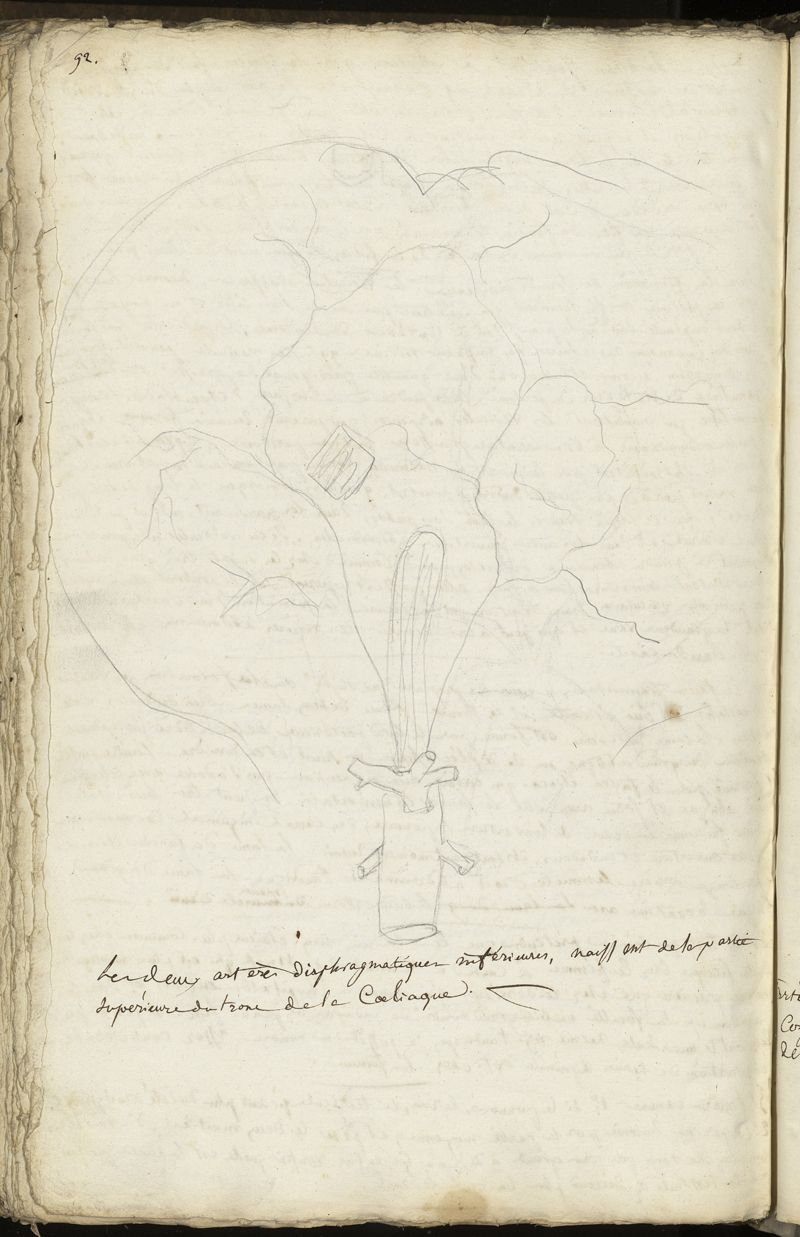 92.
Les deux artères diaphragmatiques inférieures, naissent de la partie
supérieure du tronc de la Cœliaque.